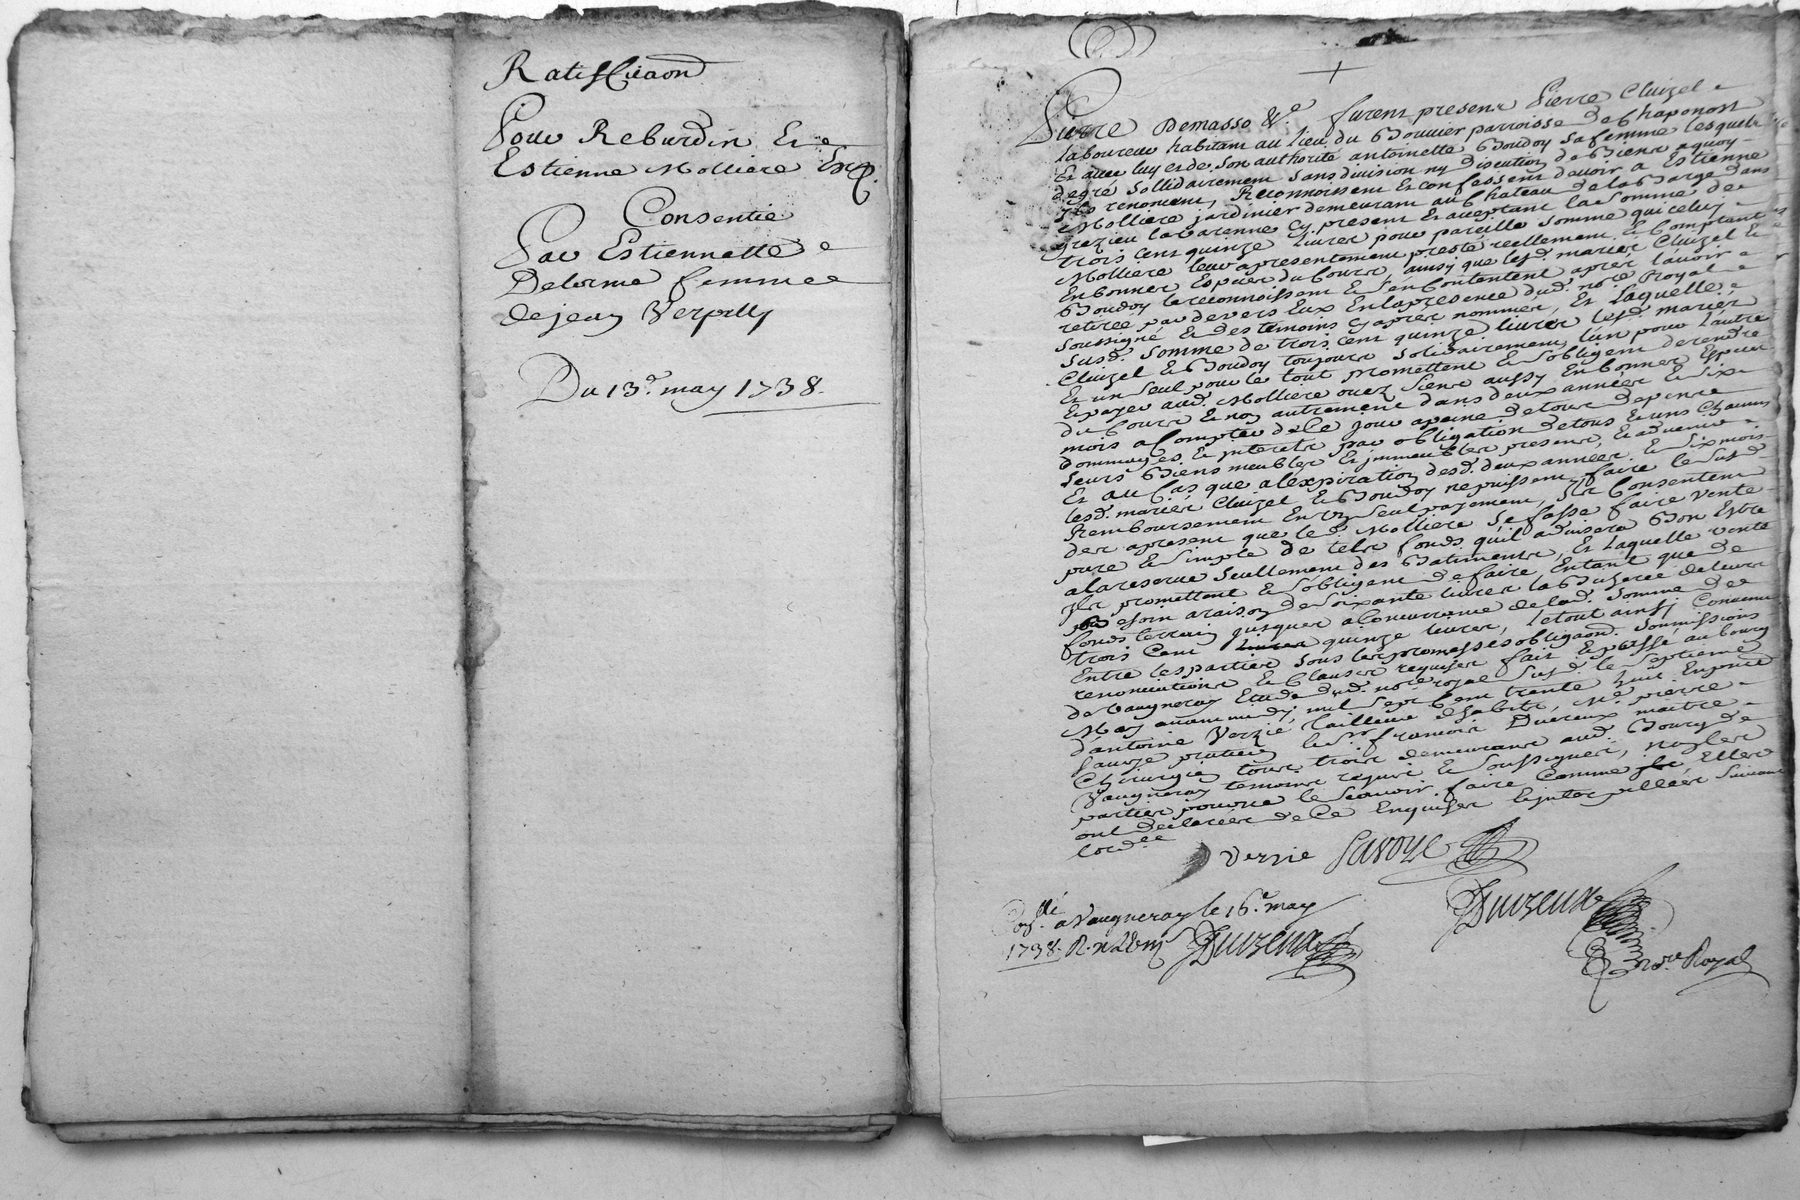 Ratiffi͠caon
Pour Reburdin Et
Estienne Molliere
Consentie
Par Estiennette
Delorme femme
de jean Verpilly
Du 13e. may 1738.
Pierre Demasso &a. furent presens Pierre Cluizel
laboureur habitant au lieu du Bouvier parroisse de Chaponost
Et avec luy et de son authorité antoinette Boudoy sa femme lesquels
de gré sollidairement sans division ny discution de Biens a quoy
Ils renoncent, Reconnoissent et confessent devoir a Estienne
Molliere jardinier demeurant au Chateau de la Barge dans
grezieu la Varenne cy present et acceptant la somme de
trois cent quinze livres pour pareille somme que celuy
Molliere leur a presentement presté reellement et Comptant
En bonnes Espèces du Cours, ainsy que lesd. mariés Cluizel Et
Boudoy le reconnoissent et s'en Contentent après l'avoir
retirée par devers Eux En la presence dud. nore Royal
soussigné et des temoins cy après nommés, Et Laquelle
susd. somme de trois cent quinze livres lesd. mariés
Cluizel et Boudoy toujours solidairement l'un pour l'autre
Et un seul pour le tout promettent et s'obligent de rendre
Et payer aud. Molliere ou ez siens aussy En bonnes Espèces
du Cours et non autrement dans deux années et six
mois a Compter de Ce jour a peine de tous depens
dommages et interets par obligation de tous et uns Chacuns
leurs Biens meubles et immeubles presens et advenir
Et au Cas que a l'expiration desd. deux années et six mois
lesd. mariés Cluizel et Boudoy ne puissent faire le susd.
Remboursement En un seul payement, Ils Consentent
des apresent que led. Molliere se fasse faire vente
pure et simple de tels fonds qu'il advisera Bon Estre
a la reserve seullement des Batiments, Et Laquelle vente
Ils promettent et s'obligent de faire Entant que de
Besoin a raison de soixante livres la Bicherée de leurs
fonds terrain jusques a Concurrance de lad. somme de
trois Cent quinze livres, le tout ainsy Convenu
Entre les parties sous les promesses obligaons. soumissions
renonciations et Clauses requises fait Et passé au bourg
de Vaugneray Etude dud. nore royal susd. le septieme
May avant midy mil sept Cent trente huit En presence
d'antoine Verzié Tailleur d'habits, Me pierre
Savoye praticien le sr francois Duvzeux maitre
Chirurgien tous trois demeurans aud. Bourg de
Vaugneray temoins requis et soussignés, non les
parties pour ne le scavoir faire Comme Elles
ont declarés de Ce Enquises et interpellées suivant
lordce
Verzié Savoye
Collé. a Vaugneray le 16e. may
1738. R.
nore Royal